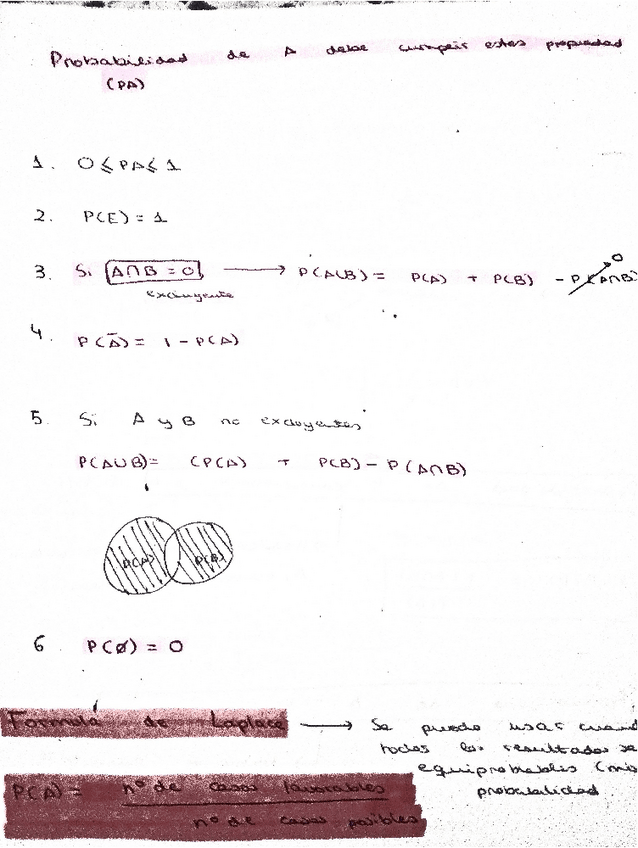 Probabilidad de A debe cumplir estas propiedad
(PA)
1. 0 ⩽ PA ⩽ 1
2. P(E) = 1
3. Si A∩B = 0 → P(A∪B) = P(A) + P(B) - P(A∩B) 0
excluyente
4. P(Ā) = 1 - P(A)
5. Si A y B no excluyentes
P(A∪B) = (P(A) + P(B) - P(A∩B)
P(A) P(B)
6 P(∅) = 0
Formula de Laplace → Se puede usar cuand
todos los resultados se
equiprobables (mis
probabilidad
P(A) = nº de casos favorables
nº de casos posibles